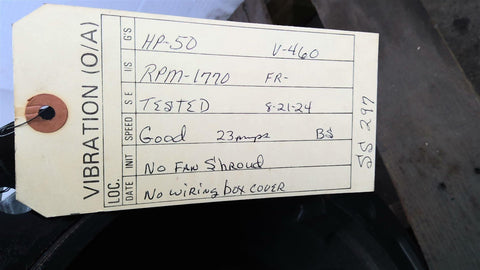 VIBRATION (O/A)
LOC.
DATE INIT SPEED S.E I/S G'S
HP-50 V-460
RPM-1770 FR-
TESTED 8-21-24
Good 23amps BS
No FAN Shroud
No wiring box cover
SS 297